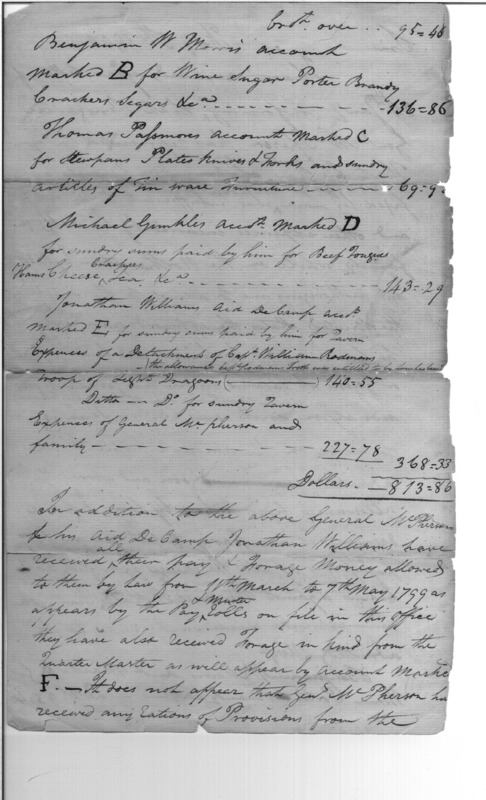 bro.t over .. 95=46
Benjamin W Morris account
Marked B for Wine Sugar Porter Brandy
Crackers Segars &c.a - - - - - 136=86
Thomas Passmores account Marked C
for Stewpans Plates Knives & Forks and sundry
articles of Tin ware Furniture - - - - 69=9
Michael Gunkles acco.t marked D
for sundry sums paid by him for Beef Tongues
Hams Cheese, Tea &c.a - - - - 143=29
Jonathan Williams Aid De Camp acco.t
marked E, for sundry sums paid by him for Tavern
Expences of a Detachment of Cap.t William Rodmans
Troop of Light Dragoons 140=55
Ditto - D.o for sundry Tavern
Expences of General Mc pherson and
family - - - 227=78
368=33
Dollars - 813=86
In addition to the above General Mc Pherson
& his Aid De Camp Jonathan Williams have
received all their pay & Forage Money allowed
to them by law from March to 7th May 1799 as
appears by the Pay & Muster Rolls on file in this office
they have also received Forage in kind from the
Quarter Master as will appear by account Marked
F. - It does not appear that Gen.l Mc Pherson ha
received any Rations of Provisions from the